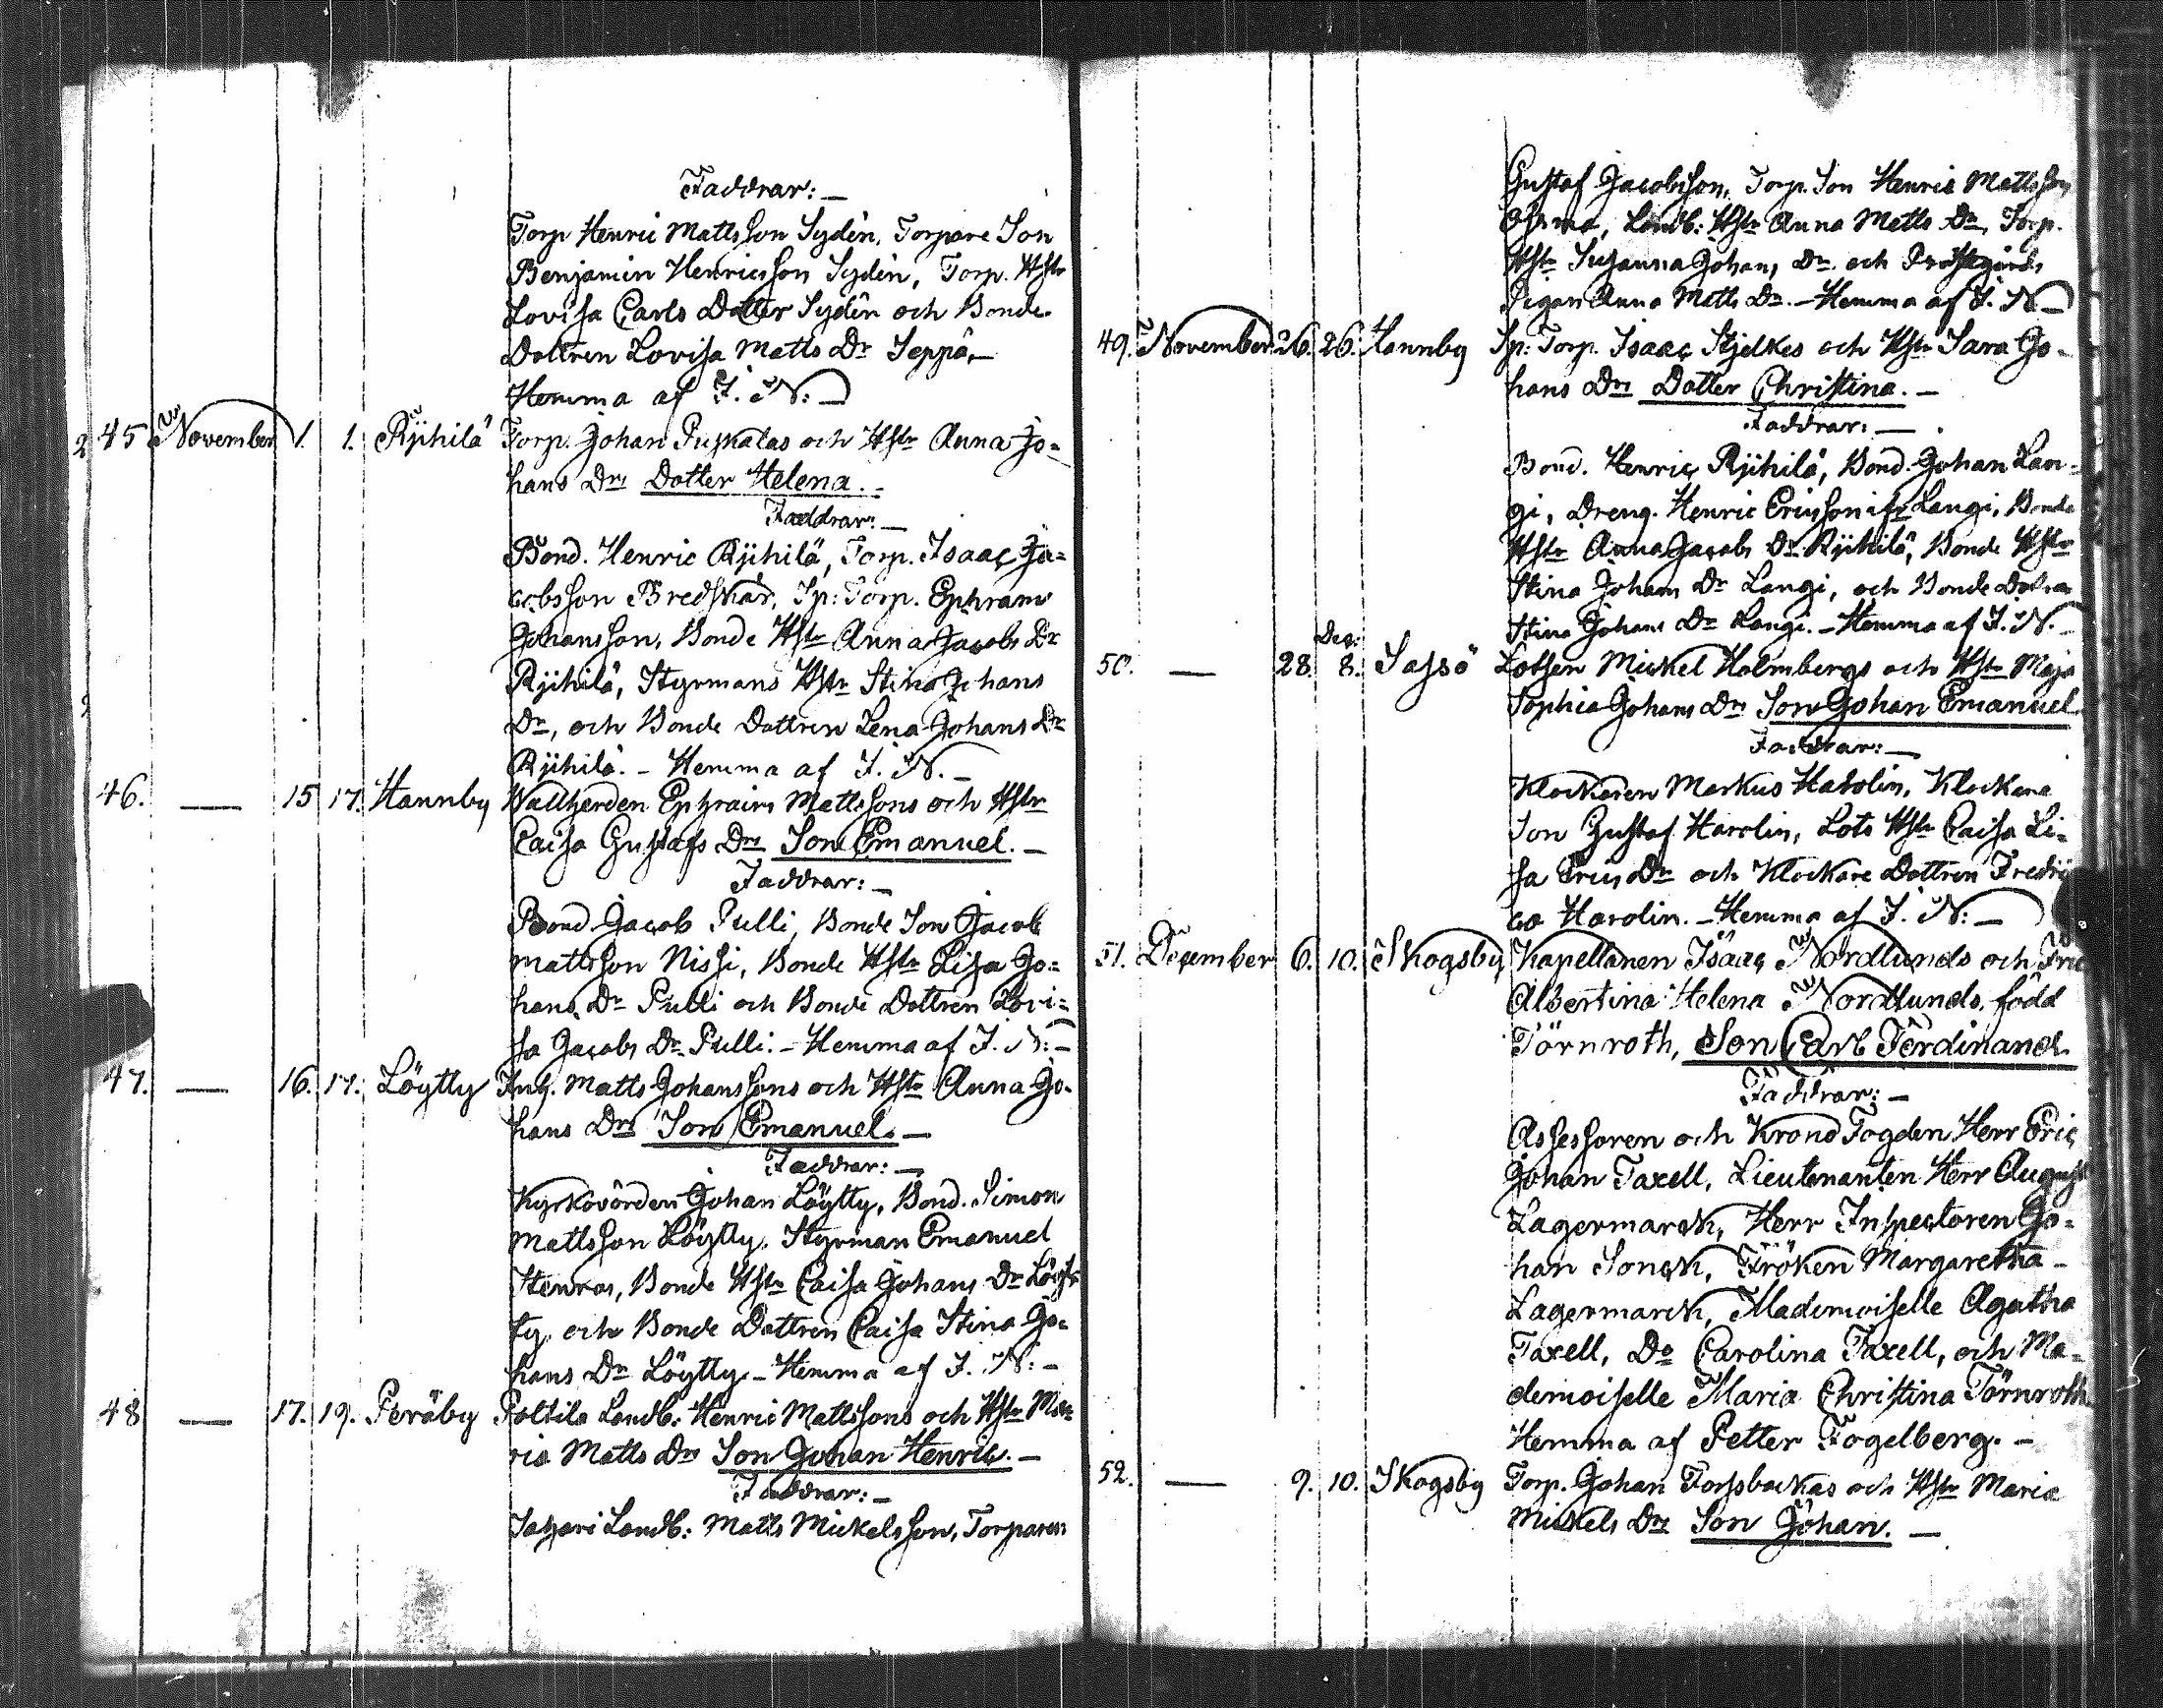 Faddrar: —
Torp Henric Mattsson Sydén, Torpare Son
Benjamin Henricsson Sydén, Torp. Hstr
Lovisa Carls Dotter Sydén och Bonde
Dottren Lovisa Matts Dr Seppä, —
Hemma af I. N: —
45 November 1. 1. Rÿhilä Torp. Johan Puskalas och Hstr Anna Jo=
hans Drs Dotter Helena. —
Faddrar: —
Bond. Henric Rÿhilä, Torp. Isaac Ja=
cobsson Bredskär, Sp: Torp. Ephraim
Johansson, Bonde Hstr Anna Jacobs Dr
Rÿhilä, Styrmans Hstr Stina Johans
Dr, och Bonde Dottren Lena Johans Dr
Rÿhilä. — Hemma af I. N. —
46. — 15 17. Hannby Wallherden Ephraim Mattssons och Hstr
Caisa Gustafs Drs Son Emanuel. —
Faddrar: —
Bond. Jacob Pulli, Bonde Son Jacob
Mattsson Nissi, Bonde Hstr Lisa Jo=
hans Dr Pulli och Bonde Dottren Lovi=
sa Jacobs Dr Pulli. — Hemma af I. N: —
47. — 16. 17. Löytty Inh. Matts Johanssons och Hstr Anna Jo=
hans Drs Son Emanuel. —
Faddrar: —
Kyrkovärden Johan Löytty, Bond. Simon
Mattsson Löytty, Styrman Emanuel
Stenros, Bonde Hstr Caisa Johans Dr Löyt=
ty, och Bonde Dottren Caisa Stina Jo=
hans Dr Löytty — Hemma af I. N: —
48 — 17. 19. Peräby Poltila Landb: Henric Mattssons och Hstr Ma=
ria Matts Drs Son Johan Henric. —
Faddrar: —
Landb: Matts Mickelsson, Torparen
Gustaf Jacobsson, Torp. Son Henric Mattsson
Landb: Hstr Anna Matts Dr, Torp.
Hstr Susanna Johans Dr och Prostgårds
Pigan Anna Matts Dr. — Hemma af I. N —
49. November 26. 26. Hannby Sp: Torp. Isaac Stjelkes och Hstr Sara Jo=
hans Drs Dotter Christina. —
Faddrar: —
Bond. Henric Rÿhilä, Bond. Johan Lan=
gi, Dreng. Henric Ericsson ifr Langi, Bonde
Hstr Anna Jacobs Dr Rÿhilä, Bonde Hstr
Stina Johans Dr Langi, och Bonde Dottren
Stina Johans Dr Langi. — Hemma af I. N. —
Dec:
50. — 28. 8. Sassö Lotsen Mickel Holmbergs och Hstr Maja
Sophia Johans Drs Son Johan Emanuel
Faddrar: —
Klockaren Markus Harolin, Klockare
Son Gustaf Harolin, Lots Hstr Caisa Li=
sa Erics Dr och Klockare Dottren Fredri
ca Harolin. — Hemma af I. N: —
51. December 6. 10. Skogsby Kapellanen Isaac Nordlunds och Fru
Albertina Helena Nordlunds, född
Törnroth, Son Carl Ferdinand.
Faddrar: —
Assessoren och Krono Fogden Herr Eric
Johan Taxell, Lieutenanten Herr August
Lagermarck, Herr Inspectoren Jo=
han Sonck, Fröken Margaretha
Lagermarck, Mademoiselle Agatha
Taxell, Do Carolina Taxell, och Ma=
demoiselle Maria Christina Törnroth
Hemma af Petter Fogelberg. —
52. — 9. 10. Skogsby Torp. Johan Forssbackas och Hstr Maria
Mickels Drs Son Johan. —